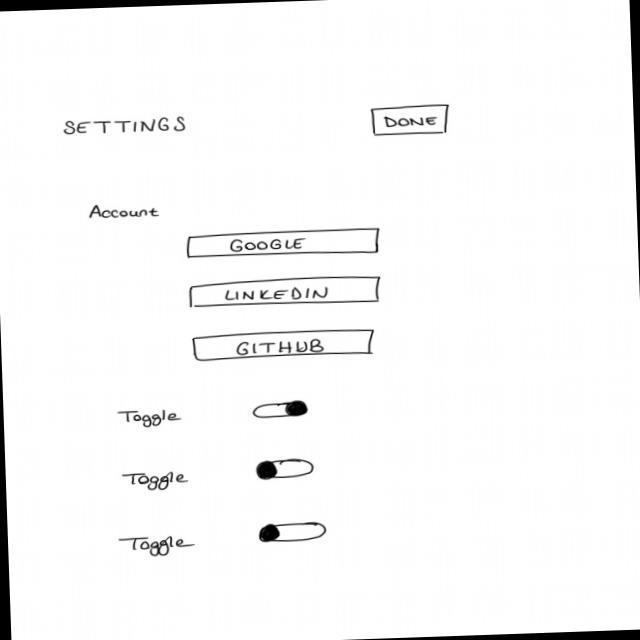 SETTINGS
DONE
Account
GOOGLE
LINKEDIN
GITHUB
Toggle
Toggle
Toggle